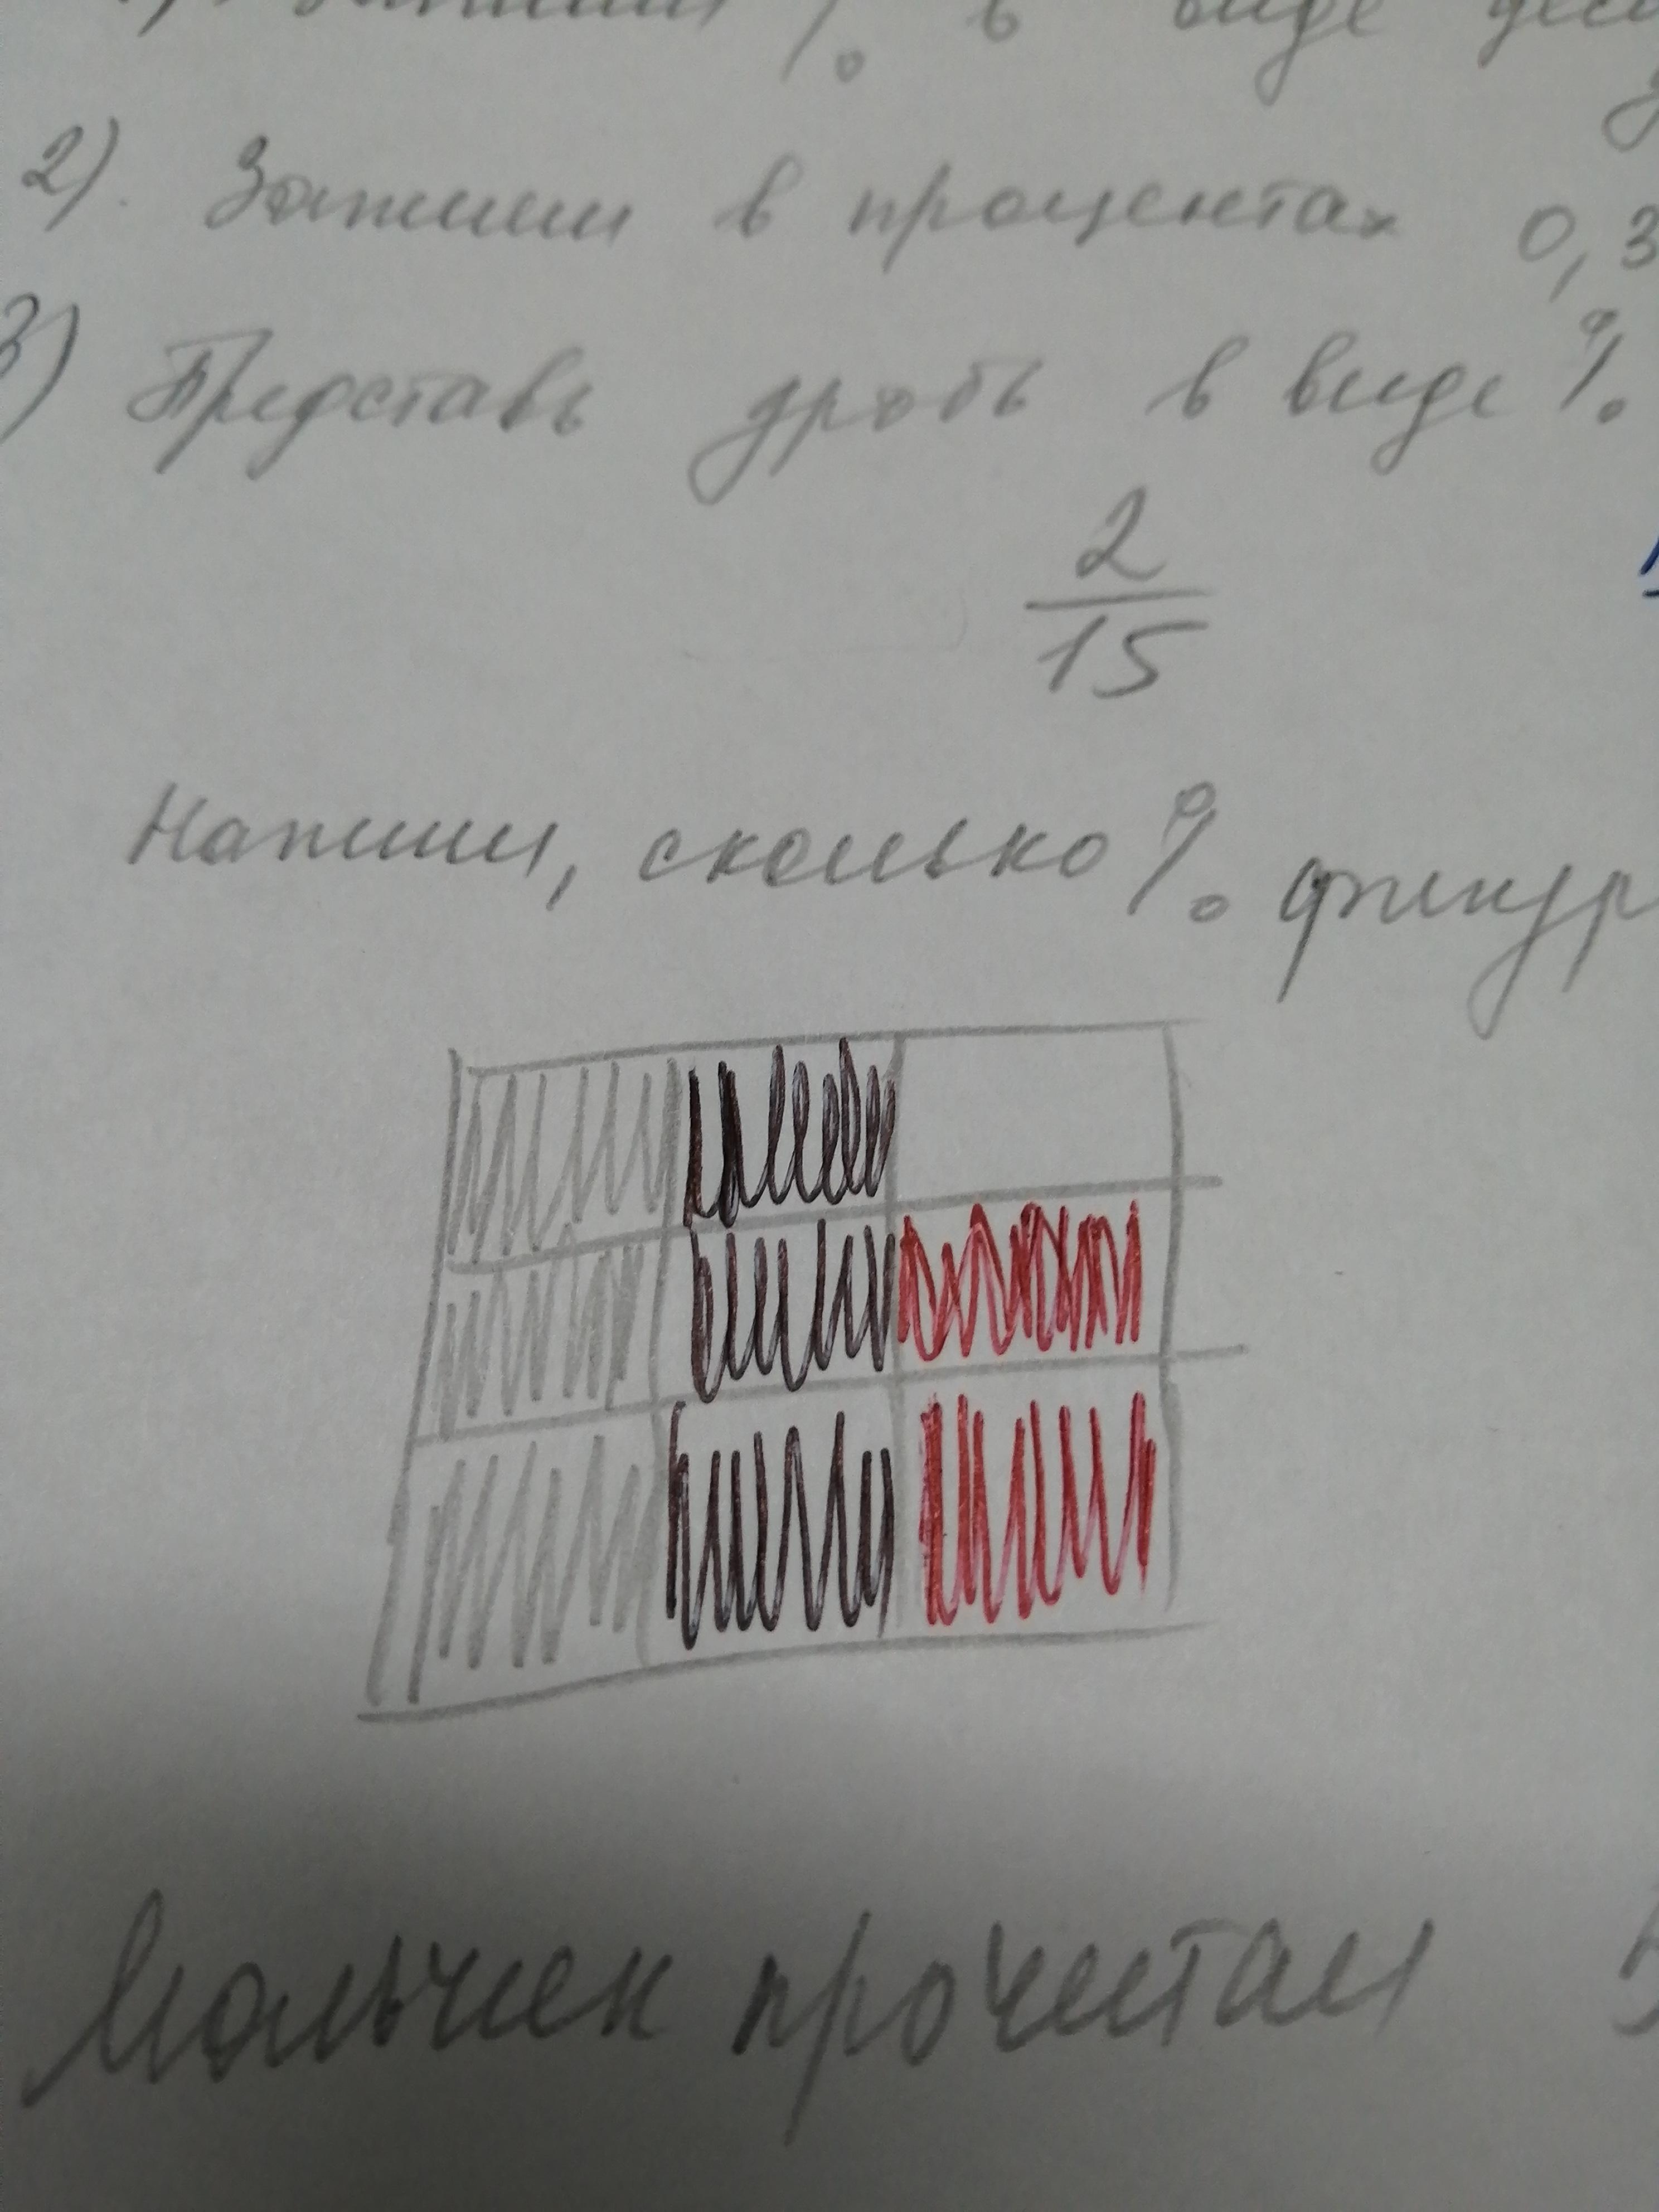 % в виде
2). Запиши в процентах 0,3
3) Представь дробь в виде %
2
15
Напиши, сколько % фигур
Мальчик прочитал